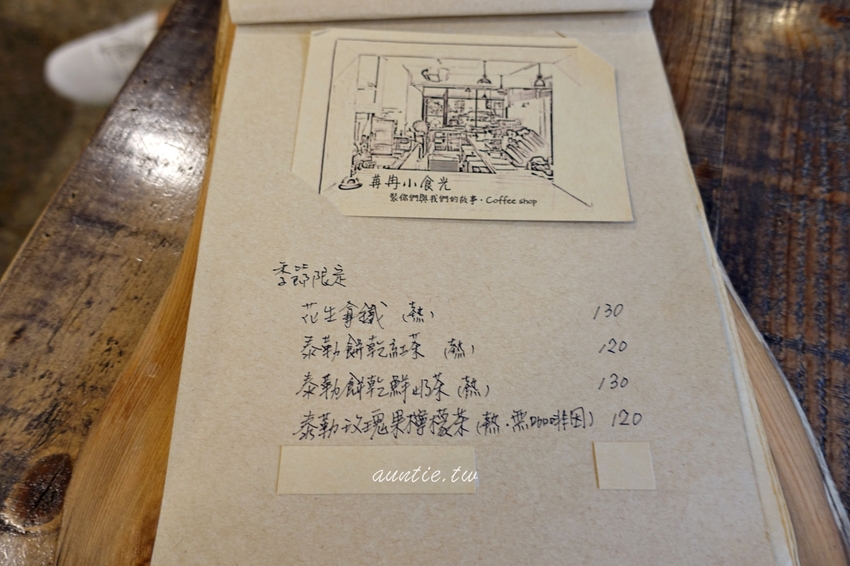 苒冉小食光
製你們與我們的故事·Coffee shop
季節限定
花生拿鐵 (熱) 130
泰勒餅乾紅茶 (熱) 120
泰勒餅乾鮮奶茶(熱) 130
泰勒玫瑰果檸檬茶(熱·無咖啡因) 120
auntie.tw